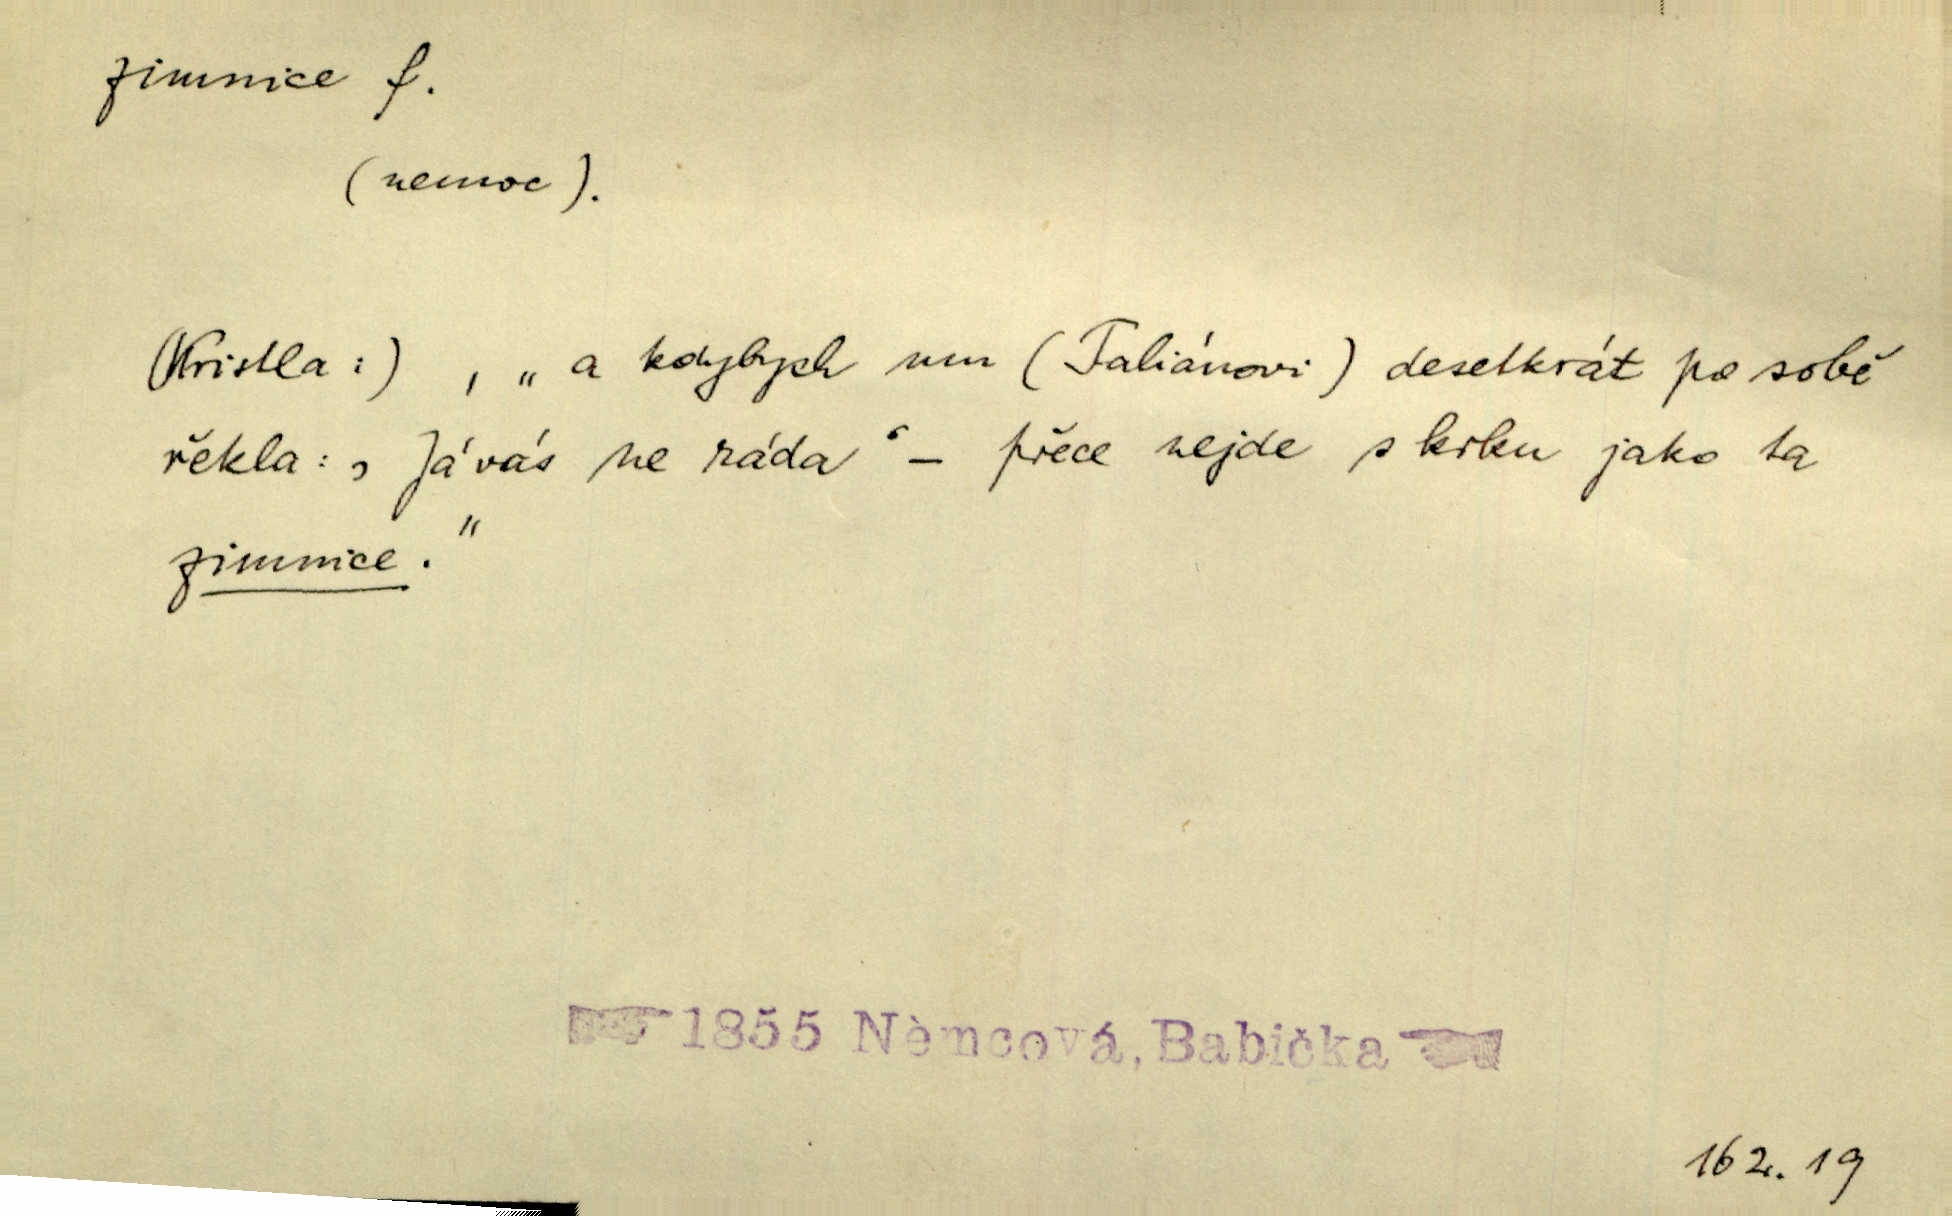 zimnice f.
(nemoc).
(Kristla:) , „a kdybych mu (Taliánovi) desetkrát po sobě
řekla: ‚Já vás ne ráda‘ – přece nejde s krku jako ta
zimnice."
1855 Němcová, Babička
162. 19